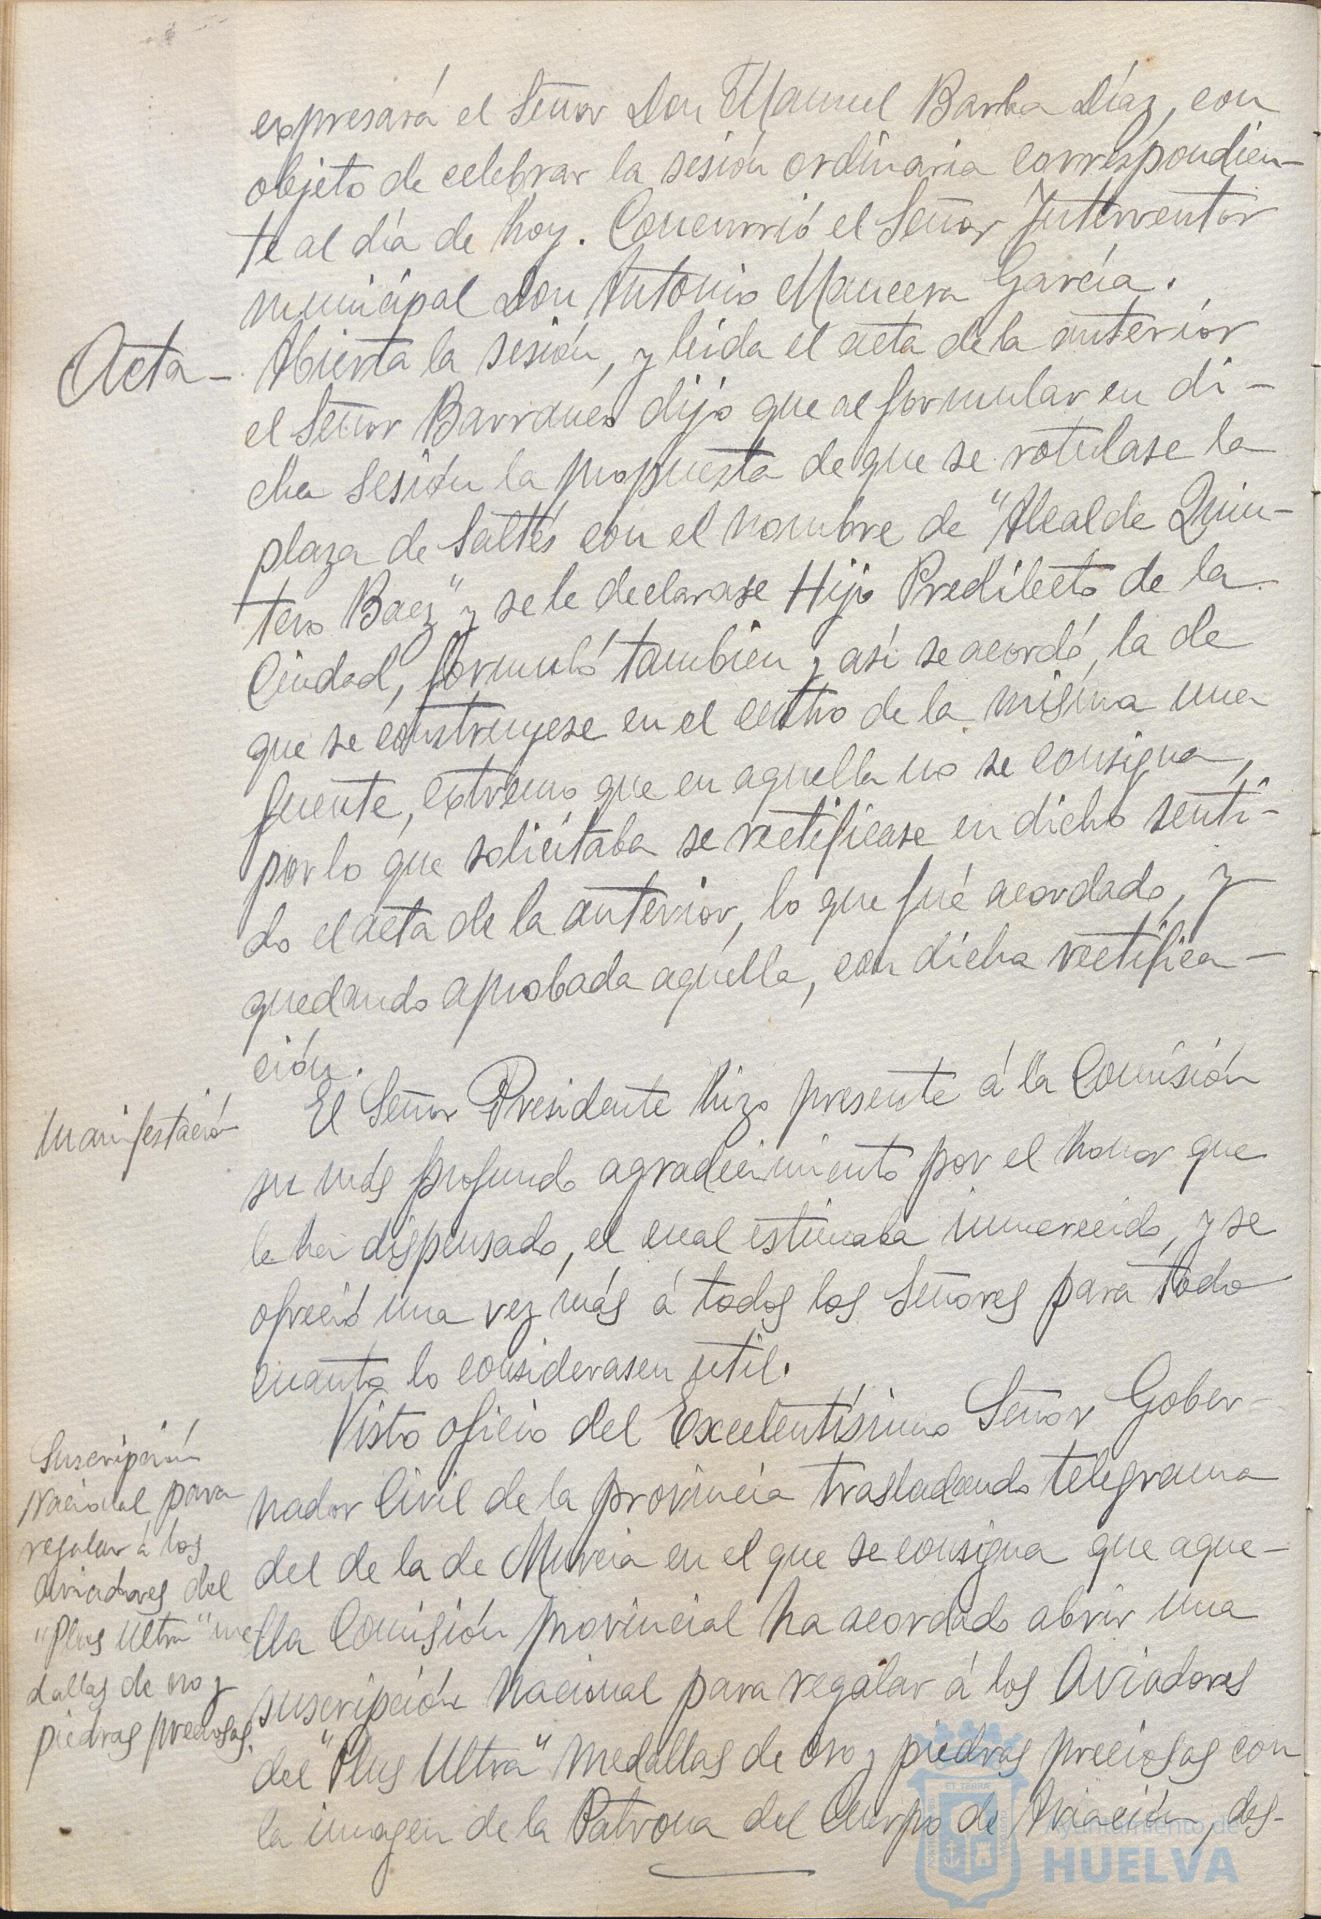 expresará el Señor Don Manuel Barba Díaz, con
objeto de celebrar la sesión ordinaria correspondien-
te al día de hoy. Concurrió el Señor Interventor
municipal Don Antonio Mancera García.
Acta - Abierta la sesión, y leida el acta de la anterior
el Señor Barranco dijo que al formular en di-
cha sesión la propuesta de que se rotulase la
plaza de Saltés con el nombre de "Alcalde Quin-
tero Baez" y se le declarase Hijo Predilecto de la
Ciudad, formuló tambien y así se acordó, la de
que se construyese en el centro de la misma una
fuente, extremo que en aquella no se consigna,
por lo que solicitaba se rectificase en dicho senti-
do el acta de la anterior, lo que fué acordado, y
quedando aprobada aquella, con dicha rectifica-
ción.
Manifestación
El Señor Presidente hizo presente á la Comisión
su más profundo agradecimiento por el honor que
le ha dispensado, el cual estimaba inmerecido, y se
ofreció una vez más á todos los Señores para todo
cuanto lo considerasen util.
Suscripción
Nacional para
regalar á los
Aviadores del
"Plus Ultra" me
dallas de oro y
piedras preciosas.
Visto oficio del Excelentísimo Señor Gober-
nador Civil de la provincia trasladando telegrama
del de la de Murcia en el que se consigna que aque-
lla Comisión provincial ha acordado abrir una
suscripción Nacional para regalar á los Aviadores
del "Plus Ultra" medallas de oro y piedras preciosas con
la imagen de la Patrona del Cuerpo de Aviación, des-
Ayuntamiento de
HUELVA